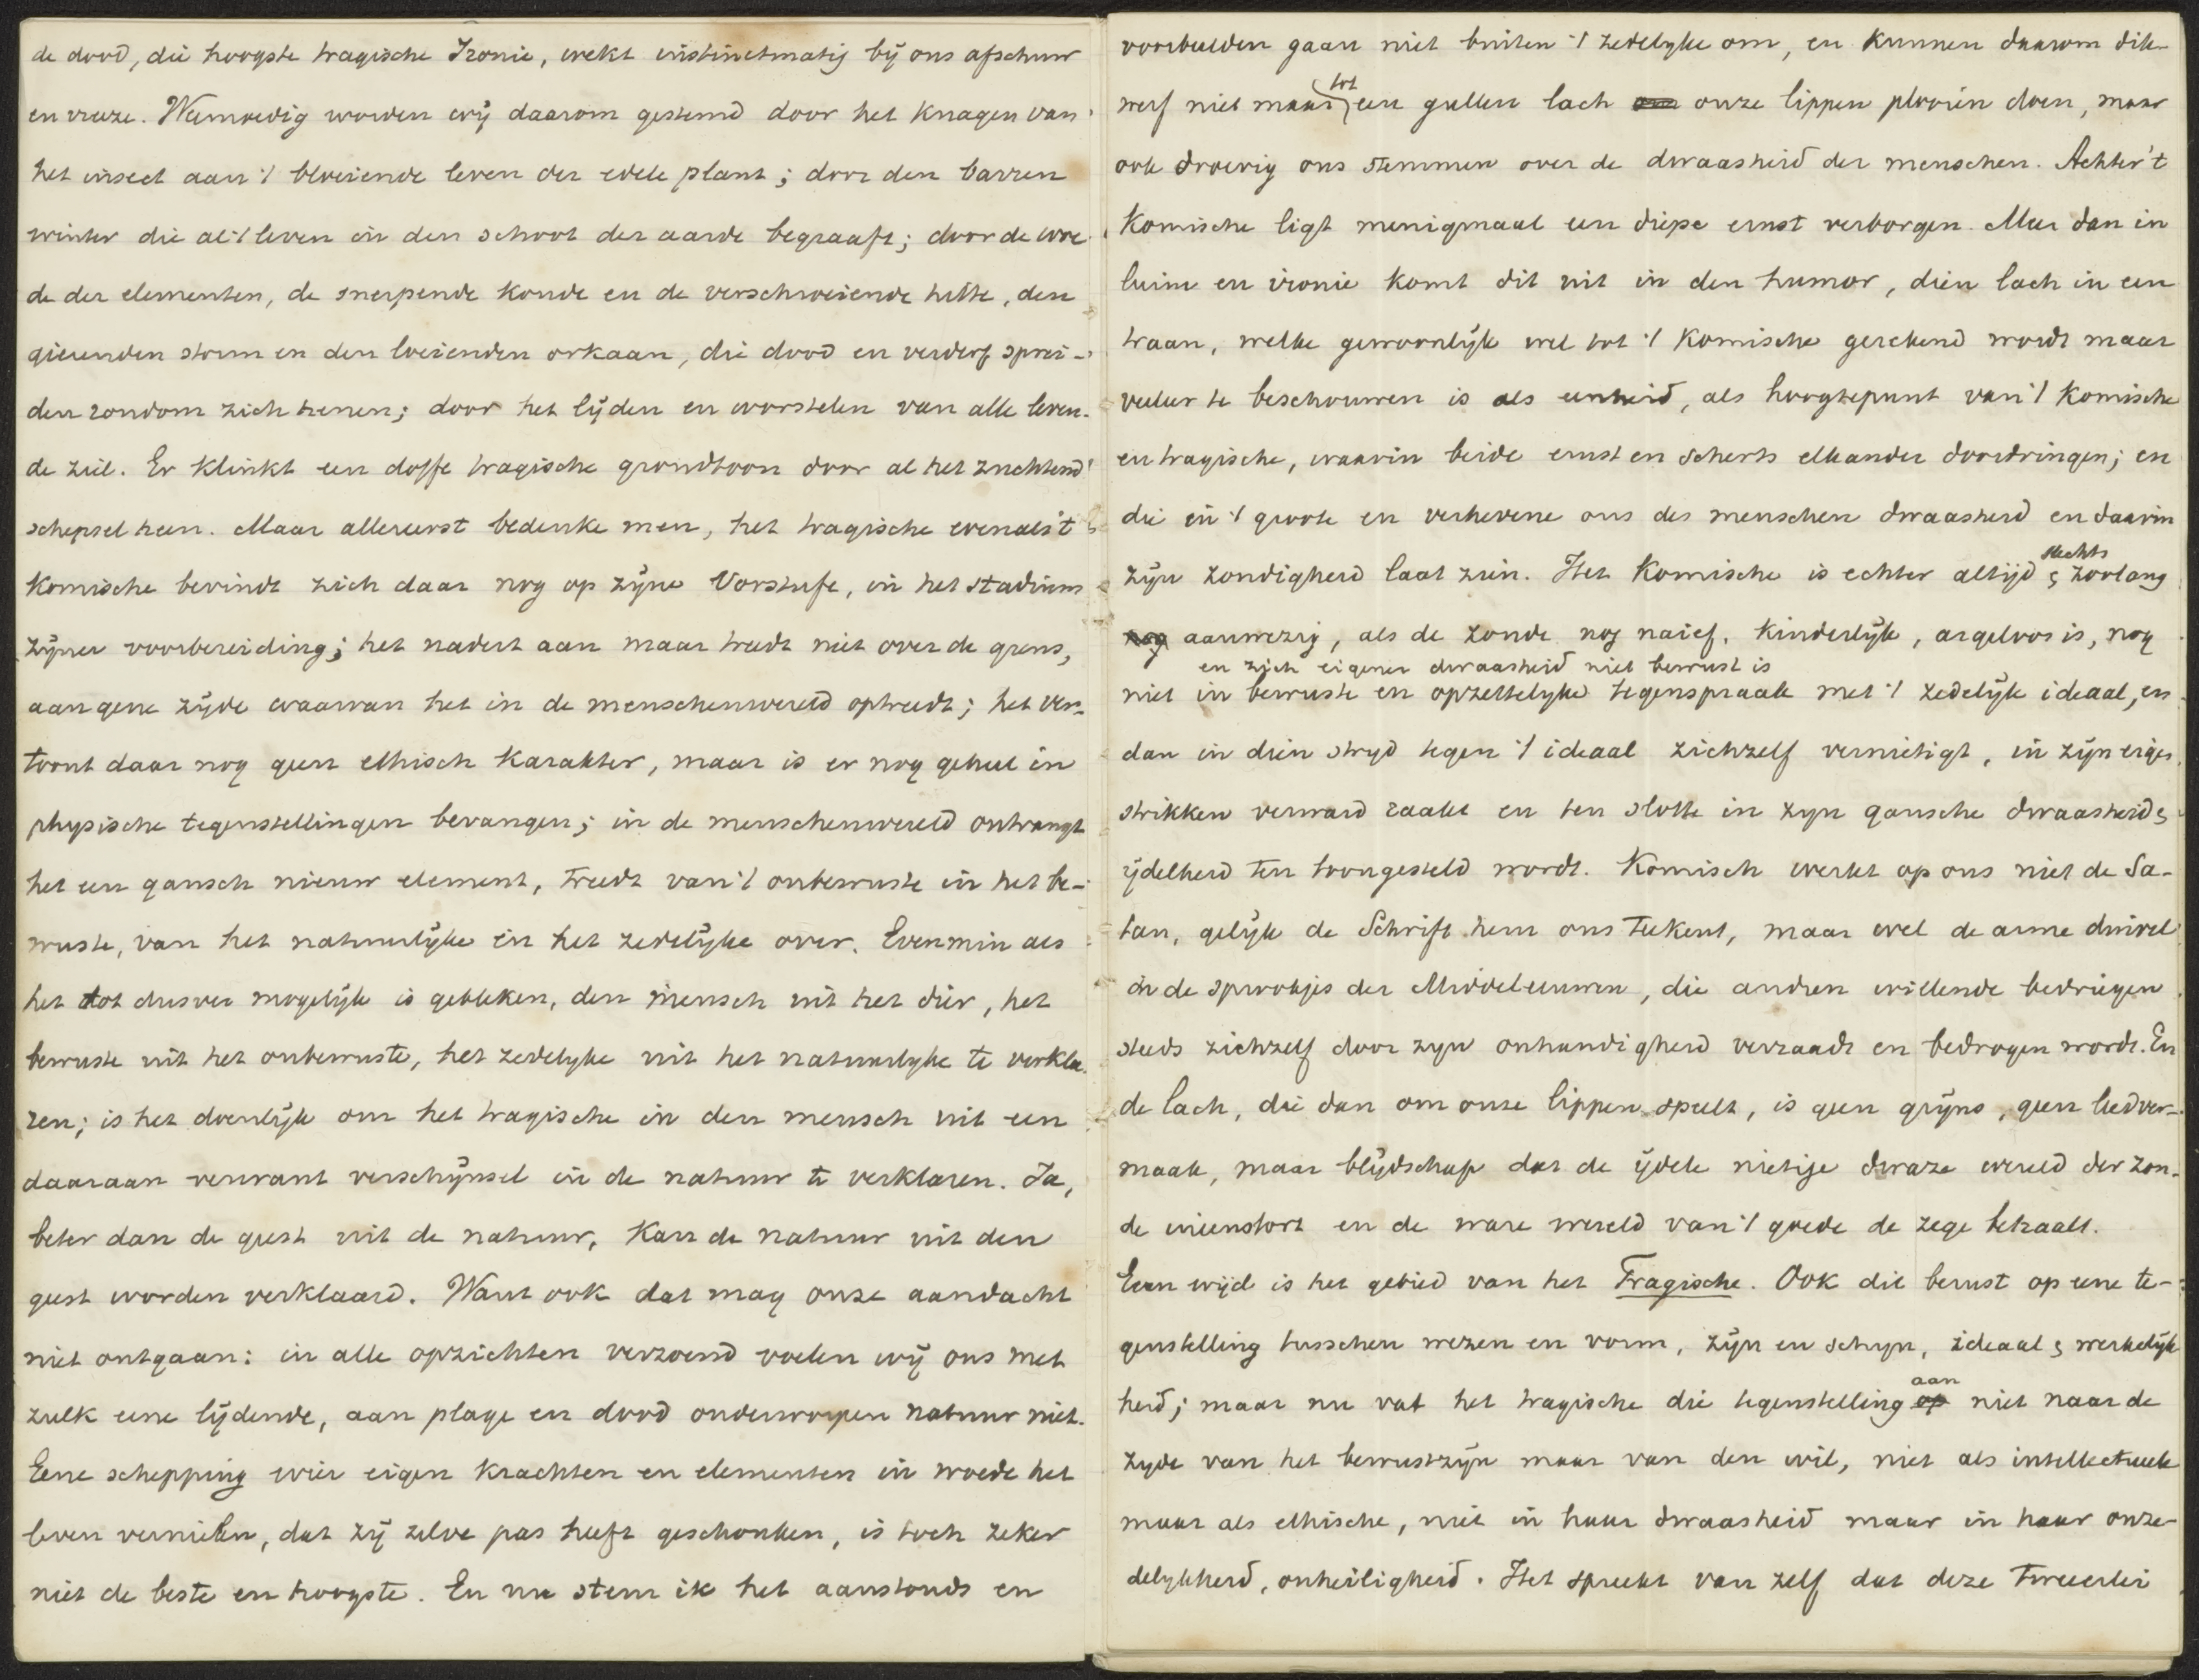 de dood, die hoogste tragische Ironie, wekt instinctmatig bij ons afschuw
en vreeze. Weemoedig worden wij daarom gestemd door het knagen van
het insect aan 't bloeiende leven der edele plant; door den barren
winter die al 't leven in den schoot der aarde begraaft; door de woe-
de der elementen, de snerpende koude en de verschroeiende hitte, den
gierenden storm en den loeienden orkaan, die dood en verderf sprei-
den rondom zich henen; door het lijden en worstelen van alle leven-
de ziel. Er klinkt een doffe tragische grondtoon door al het zuchtend
schepsel heen. Maar allereerst bedenke men, het tragische evenals 't
komische bevindt zich daar nog op zijne Vorstufe, in het stadium
zijner voorbereiding; het nadert aan maar treedt niet over de grens,
aan gene zijde waarvan het in de menschenwereld optreedt; het ver-
toont daar nog geen ethisch karakter, maar is er nog geheel in
physische tegenstellingen bevangen; in de menschenwereld ontvangt
het een gansch nieuw element, treedt van 't onbewuste in het be-
wuste, van het natuurlijke in het zedelijke over. Evenmin als
het tot dusver mogelijk is gebleken, den mensch uit het dier, het
bewuste uit het onbewuste, het zedelyke uit het natuurlyke te verkla-
ren; is het doenlijk om het tragische in den mensch uit een
daaraan verwant verschijnsel in de natuur te verklaren. Ja,
beter dan de geest uit de natuur, kan de natuur uit den
geest worden verklaard. Want ook dat mag onze aandacht
niet ontgaan: in alle opzichten verzoend voelen wij ons met
zulk eene lijdende, aan plage en dood onderworpen natuur niet.
Eene schepping wier eigen krachten en elementen in woede het
leven vernielen, dat zij zelve pas heeft geschonken, is toch zeker
niet de beste en hoogste. En nu stem ik het aanstonds en
voorbeelden gaan niet buiten 't zedelyke om, en kunnen daarom dik-
tot
werf niet maar een gullen lach om onze lippen plooien doen, maar
ook droevig ons stemmen over de dwaasheid der menschen. Achter 't
Komische ligt menigmaal een diepe ernst verborgen. Meer dan in
luim en ironie komt dit uit in den humor, dien lach in een
traan, welke gewoonlijk wel tot 't komische gerekend wordt maar
veeleer te beschouwen is als eenheid, als hoogtepunt van 't komische
en tragische, waarin beide ernst en scherts elkander doordringen; en
die in 't groote en verhevene ons des menschen dwaasheid en daarin
slechts
zijn zondigheid laat zien. Het Komische is echter altijd & zoolang
nog aanwezig, als de zonde nog naief, kinderlijk, argeloos is, nog
en zich eigener dwaasheid niet bewust is
niet in bewuste en opzettelyke tegenspraak met 't zedelijk ideaal, en
dan in dien stryd tegen 't ideaal zichzelf vernietigt, in zijn eigen
strikken verward raakt en ten slotte in zyn gansche dwaasheid &
ijdelheid ten toongesteld wordt. Komisch werkt op ons niet de Sa-
tan, gelijk de Schrift hem ons teekent, maar wel de arme duivel
in de sprookjes der Middeleeuwen, die andren willende bedriegen
steeds zichzelf door zyn onhandigheid verraadt en bedrogen wordt. En
de lach, die dan om onze lippen speelt, is geen grijns, geen leedver-
maak, maar blijdschap dat de ijdele nietige dwaze wereld der zon-
de ineenstort en de ware wereld van 't goede de zege behaalt.
Even wijd is het gebied van het Tragische. Ook dit berust op eene te-
genstelling tusschen wezen en vorm, zijn en schyn, ideaal & werkelijk
aan
heid; maar nu vat het tragische die tegenstelling op niet naar de
zyde van het bewustzijn maar van den wil, niet als intellectueele
maar als ethische, niet in haar dwaasheid maar in haar onze-
delykheid, onheiligheid. Het spreekt van zelf dat deze tweeerlei